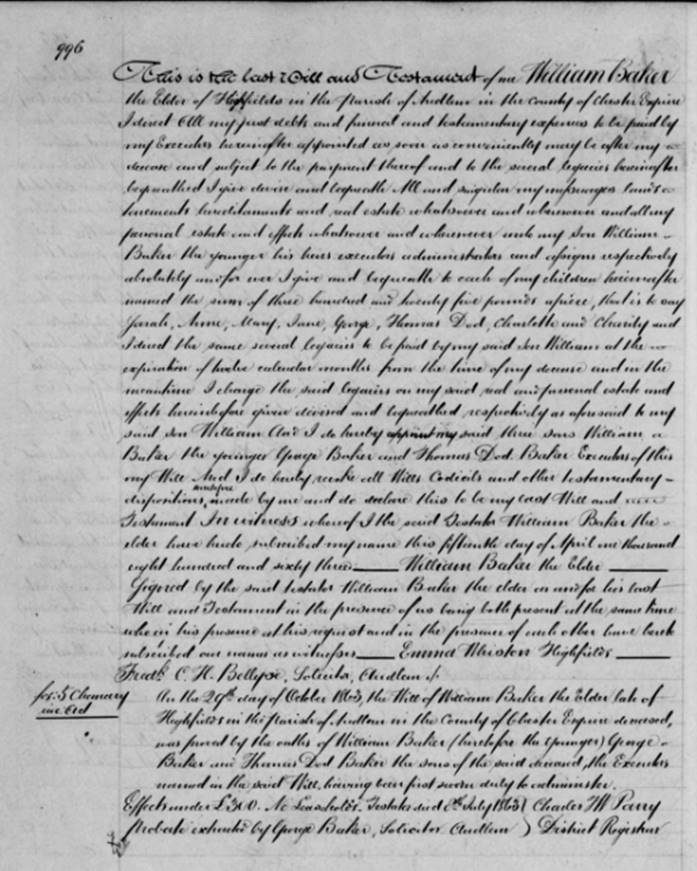 996
This is the last Will and Testament of me William Baker
the Elder of Highfields in the Parish of Audlem in the County of Chester Esquire
I direct All my just debts and funeral and testamentary expenses to be paid by
my Executors hereinafter appointed as soon as conveniently may be after my
decease and subject to the payment thereof and to the several legacies hereinafter
bequeathed I give devise and bequeath All and singular my messuages lands
tenements hereditaments and real estate whatsoever and wheresoever and all my
personal estate and effects whatsoever and wheresoever unto my Son William
Baker the younger his heirs executors administrators and assigns respectively
absolutely and for ever I give and bequeath to each of my children hereinafter
named the sum of three hundred and twenty five pounds apiece, that is to say
Sarah, Anne, Mary, Jane, George, Thomas Dod, Charlotte and Charity and
I direct the same several legacies to be paid by my said Son William at the
expiration of twelve calendar months from the time of my decease and in the
meantime I charge the said legacies on my said real and personal estate and
effects hereinbefore given devised and bequeathed respectively as aforesaid to my
said Son William And I do hereby appoint my said three sons William
Baker the younger George Baker and Thomas Dod Baker Executors of this
my Will And I do hereby revoke all Wills Codicils and other testamentary
dispositions heretofore made by me and do declare this to be my last Will and
Testament In witness whereof I the said Testator William Baker the
elder have hereto subscribed my name this fifteenth day of April one thousand
eight hundred and sixty three — William Baker the Elder —
Signed by the said testator William Baker the elder as and for his last
Will and Testament in the presence of us being both present at the same time
who in his presence at his request and in the presence of each other have hereto
subscribed our names as witnesses — Emma Whiston Highfields —
Fredk. C. H. Bellyse, Solicitor, Audlem
On the 29th day of October 1863, the Will of William Baker the Elder late of
Highfields in the Parish of Audlem in the County of Chester Esquire deceased,
was proved by the oaths of William Baker (heretofore the younger) George
Baker and Thomas Dod Baker the sons of the said deceased, the Executors
named in the said Will, having been first sworn duly to administer.
Effects under £300. No Leaseholds. Testator died July 1863 } Charles W Parry
Probate extracted by George Baker, Solicitor Audlem } District Registrar